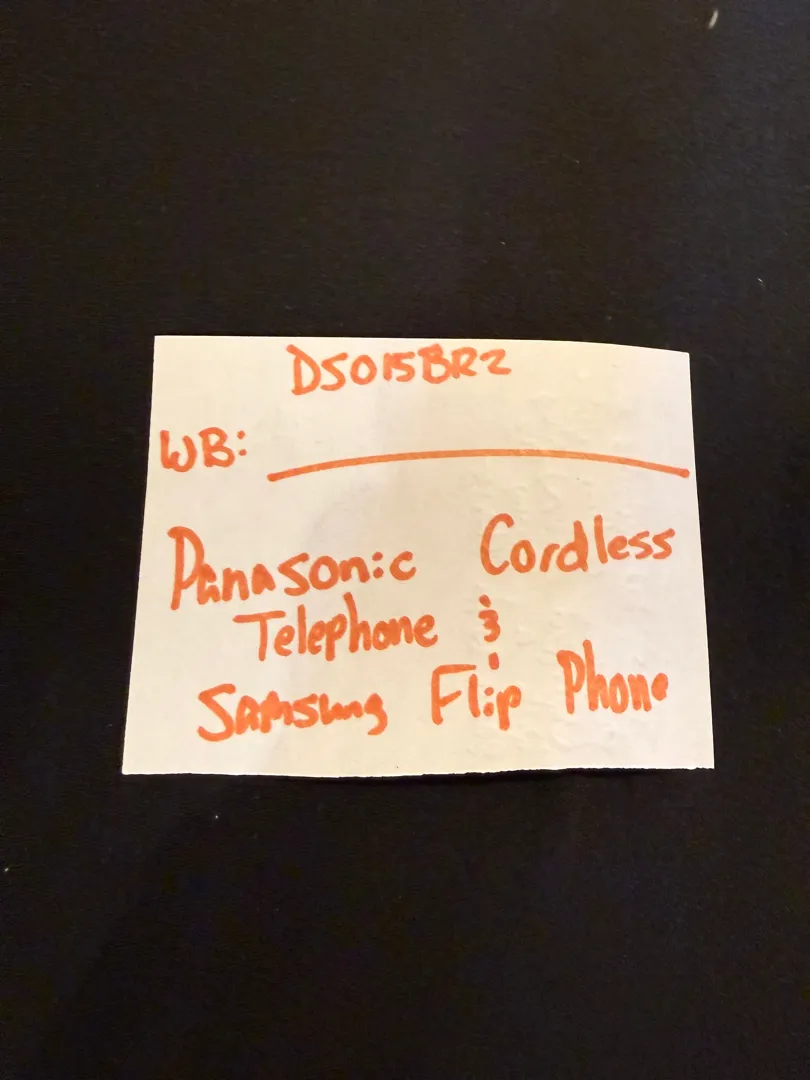 DS015BR2
WB:
Panasonic Cordless
Telephone &
Samsung Flip Phone